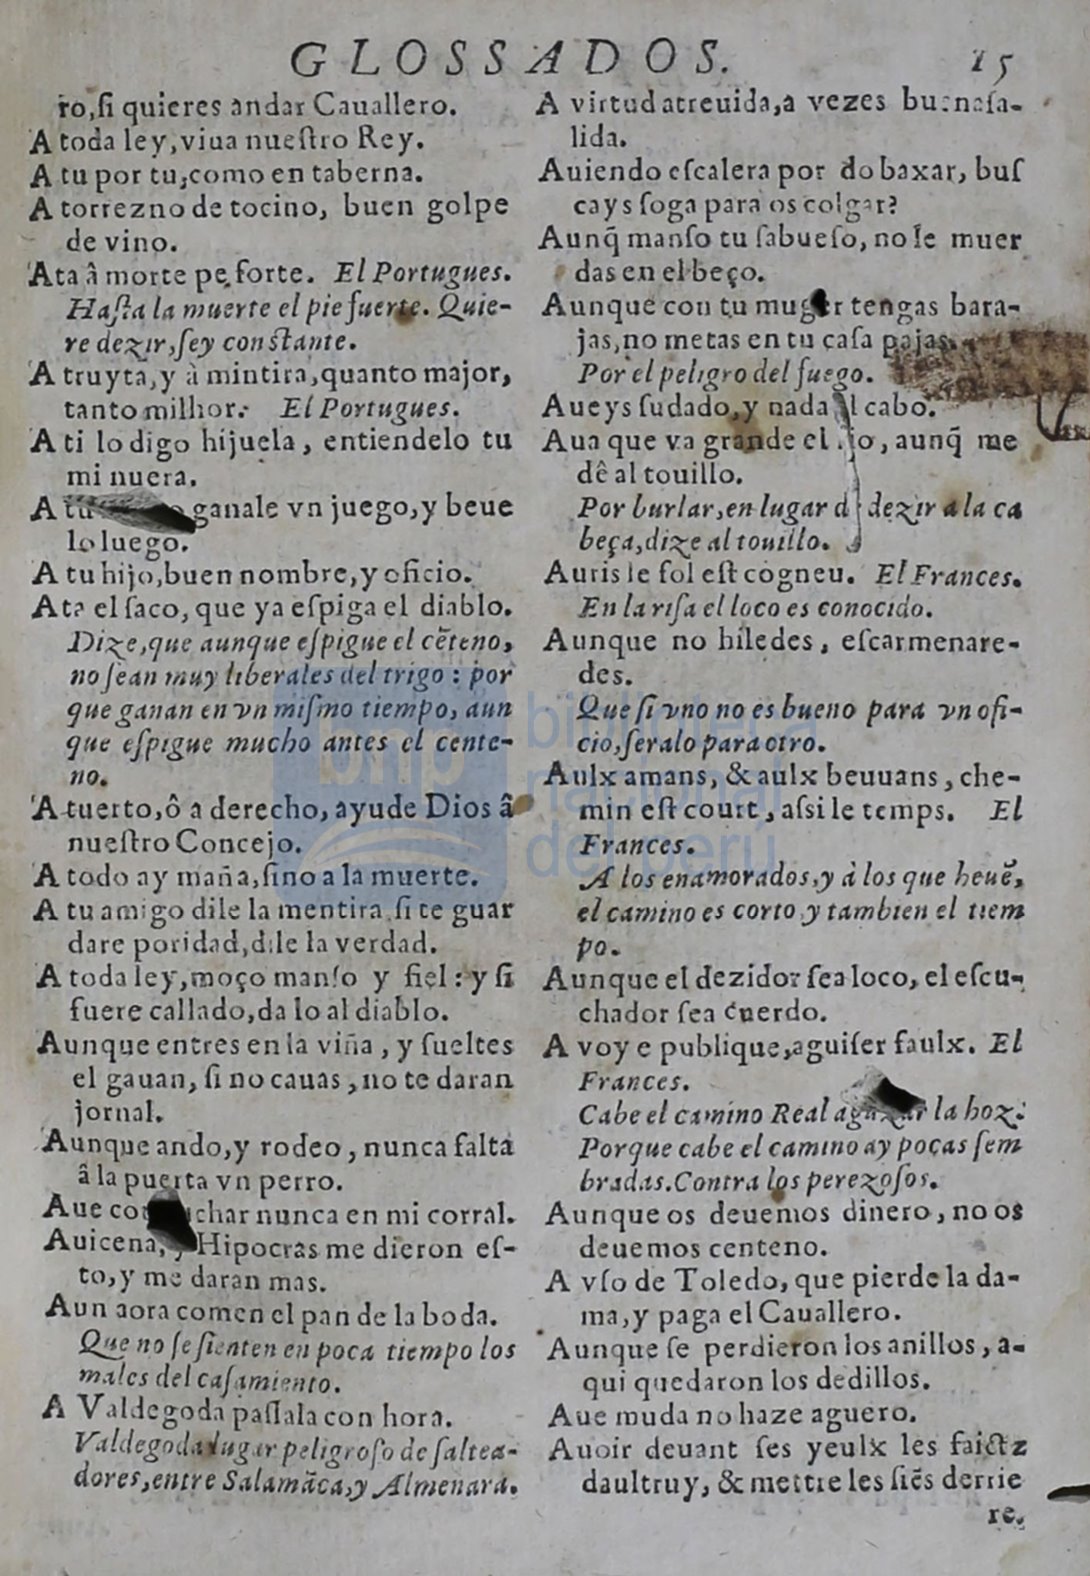 GLOSSADOS. 15
ro,ſi quieres andar Cauallero.
A toda ley,viua nueſtro Rey.
A tu por tu,como en taberna.
A torrezno de tocino, buen golpe
de vino.
Ata â morte pe forte. El Portugues.
Haſta la muerte el pie fuerte. Quie-
re dezir,ſey conſtante.
A truyta,y à mintira,quanto major,
tanto milhor. El Portugues.
A ti lo digo hijuela, entiendelo tu
mi nuera.
A tu ganale vn juego,y beue
lo luego.
A tu hijo,buen nombre,y oficio.
Ata el ſaco, que ya eſpiga el diablo.
Dize,que aunque eſpigue el cẽteno,
no ſean muy liberales del trigo : por
que ganan en vn miſmo tiempo, aun
que eſpigue mucho antes el cente-
no.
A tuerto,ô a derecho, ayude Dios â
nueſtro Concejo.
A todo ay maña,ſino a la muerte.
A tu amigo dile la mentira,ſi te guar
dare poridad,dile la verdad.
A toda ley,moço manſo y fiel : y ſi
fuere callado,da lo al diablo.
Aunque entres en la viña, y ſueltes
el gauan, ſi no cauas, no te daran
jornal.
Aunque ando,y rodeo, nunca falta
â la puerta vn perro.
Aue char nunca en mi corral.
Auicena, y Hipocras me dieron eſ-
to,y me daran mas.
Aun aora comen el pan de la boda.
Que no ſe ſienten en poca tiempo los
males del caſamiento.
A Valdegoda paſſala con hora.
Valdegoda lugar peligroſo de ſaltea-
dores,entre Salamãca,y Almenara.
A virtud atreuida,a vezes buena ſa-
lida.
Auiendo eſcalera por do baxar, buſ
cays ſoga para os colgar?
Aunq̃ manſo tu ſabueſo, no le muer
das en el beço.
Aunque con tu muger tengas bara-
jas,no metas en tu caſa pajas.
Por el peligro del fuego.
Aueys ſudado,y nada al cabo.
Aua que va grande el rio, aunq̃ me
dê al touillo.
Por burlar,en lugar de dezir a la ca
beça,dize al touillo.
Auris le fol eſt cogneu. El Frances.
En la riſa el loco es conocido.
Aunque no hiledes, eſcarmenare-
des.
Que ſi vno no es bueno para vn ofi-
cio,ſeralo para otro.
Aulx amans, & aulx beuuans, che-
min eſt court, aſsi le temps. El
Frances.
A los enamorados,y à los que beuẽ,
el camino es corto,y tambien el tiem
po.
Aunque el dezidor ſea loco, el eſcu-
chador ſea cuerdo.
A voy e publique,aguiſer faulx. El
Frances.
Cabe el camino Real aguzar la hoz:
Porque cabe el camino ay pocas ſem
bradas.Contra los perezoſos.
Aunque os deuemos dinero, no os
deuemos centeno.
A vſo de Toledo, que pierde la da-
ma,y paga el Cauallero.
Aunque ſe perdieron los anillos, a-
qui quedaron los dedillos.
Aue muda no haze aguero.
Auoir deuant ſes yeulx les faictz
daultruy, & mettre les ſiẽs derrie
re.
bnp biblioteca
nacional
del perú